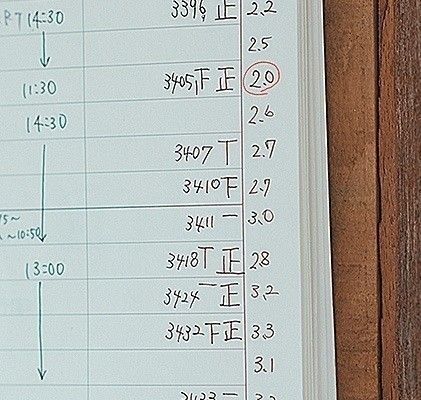 14:30 3396 正 2.2
2.5
11:30 3405 下正 2.0
14:30 2.6
3407 丅 2.7
3410 下 2.7
3411 一 3.0
~10:50
13:00 3418 丅正 2.8
3424 一正 3.2
3432 下正 3.3
3.1